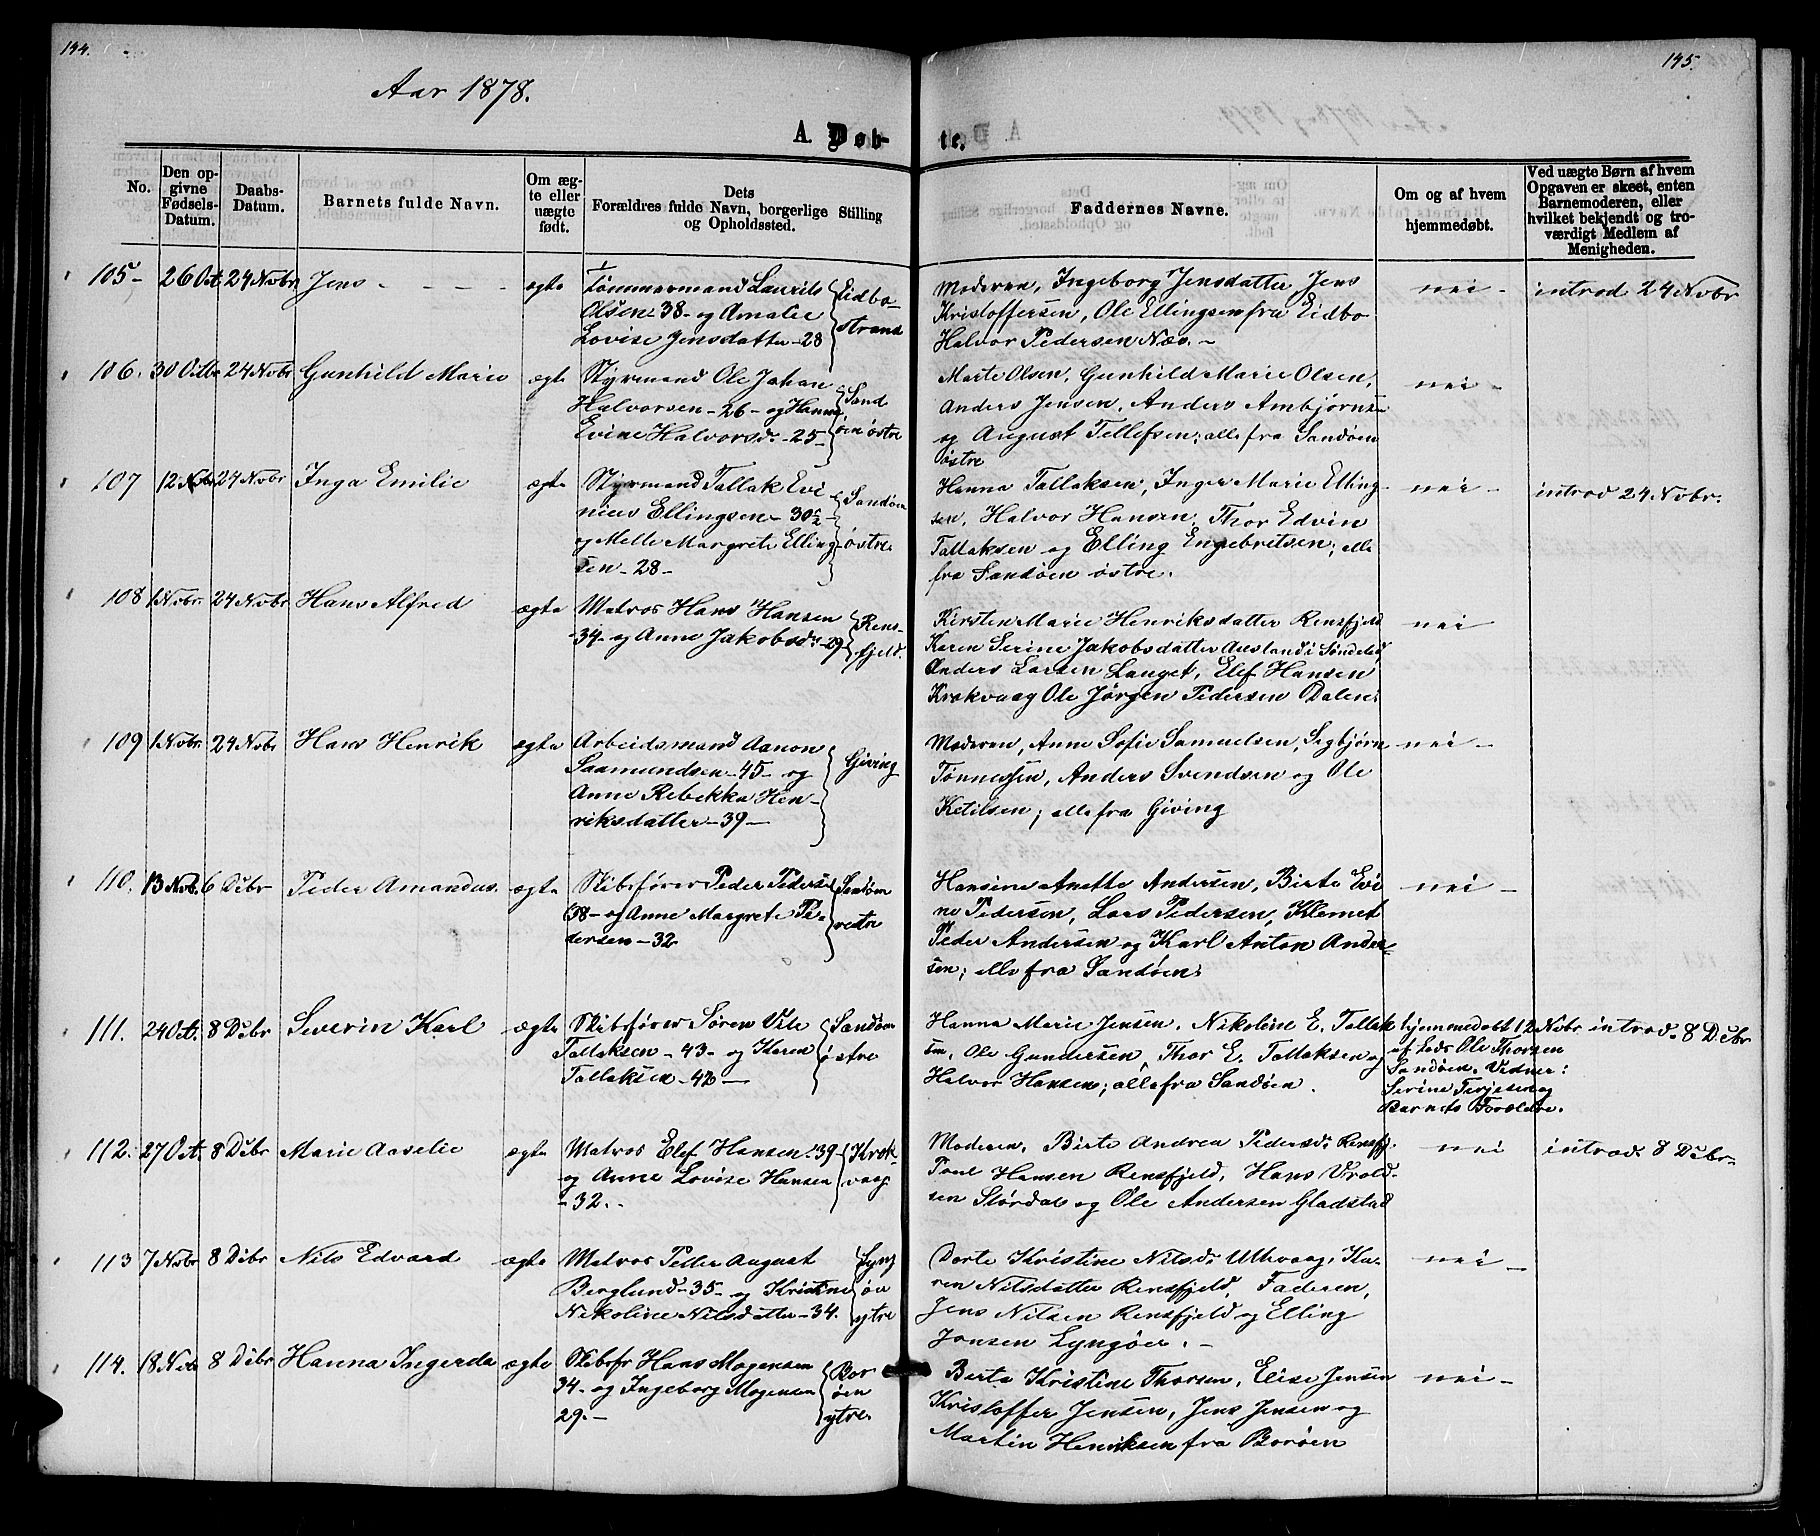 144.
145.
Aar 1878.
A. Døb-
te.
No.
Den op-
givne
Fødsels-
Datum.
Daabs-
Datum.
Barnets fulde Navn.
Om æg-
te eller
uægte
født.
Dets
Forældres fulde Navn, borgerlige Stilling
og Opholdssted.
Faddernes Navne.
Om og af hvem
hjemmedøbt.
Ved uægte Børn af hvem
Opgaven er skeet, enten
Barnemoderen, eller
hvilket bekjendt og tro-
værdigt Medlem af
Menigheden.
105 - 26 Oct. 24 Nobr Jens - - - - ægte
Tømmermand Laurits
Olsen - 38 - og Amalie
Lovise Jensdatter - 28
Eidbo-
strand
Moderen, Ingeborg Jensdatter, Jens
Kristoffersen, Ole Ellingsen fra Eidbo
Halvor Pedersen Næs. -
nei - introd 24 Nobr
106. 30 Octbr 24 Nobr Gunhild Marie ægte
Styrmand Ole Johan
Halvorsen - 26 - og Hanna
Evine Halvorsdr - 25 -
Sand
øen østre
Marte Olsen, Gunhild Marie Olsen,
Anders Jensen, Anders Ambjørns-
og August Tellefsen; alle fra Sandøen
østre
nei -
107 12 Nobr 24 Nobr Inga Emilie ægte
Styrmand Tallak Evi
nius Ellingsen - 30
og Melle Margrete Elling-
sen - 28 -
Sandøen
østre
Hanna Tallaksen, Inger Marie Elling-
sen, Halvor Hansen, Thor Edvin
Tallaksen og Elling Engebritsen; alle
fra Sandøen østre.
nei - introd 24 Nobr.
108 1 Nobr. 24 Nobr Hans Alfred ægte
Matros Hans Hansen
- 34 - og Anne Jakobsdr - 29
Rens-
fjeld.
Kirsten Marie Henriksdatter Rensfjeld
Karen Serine Jakobsdatter Aasland i Søndeled
Anders Larsen Langet, Elef Hansen
Krokvaag Ole Jørgen Pedersen Dalen.
nei
109 1 Nobr. 24 Nobr Hans Henrik ægte
Arbeidsmand Aanon
Saamundsen - 45 - og
Anne Rebekka Hen-
riksdatter - 39 -
Giving
Moderen, Anne Sofie Samuelsen, Segbjørn
Tønnessen, Anders Svendsen og Ole
Ketilsen; alle fra Giving
nei -
110. 13 Nob. 6 Debr Peder Amandus. ægte
Skibsfører Peder Peders
58 - og Anne Margrete Pe-
dersen - 32
Sandøen
vestre
Hansine Anette Andersen, Birte Evi
ne Pedersen, Lars Pedersen, Klemet
Peder Andersen og Karl Anton Ander-
sen; alle fra Sandøen.
nei -
111. 24 Oct. 8 Debr Severin Karl ægte
Skibsfører Søren Vile
Tallaksen - 43 - og Karen
Tallaksen - 42 -
Sandøen
østre
Hanna Marie Jensen, Nikoline E. Tallak
sen, Ole Gundersen, Thor E. Tallaksen og
Halvor Hansen; alle fra Sandøen.
hjemmedøbt 12 Nobr
af Lods Ole Thorsen
Sandøen. Vidner:
Serine Terjesen og
Barnets Forældre.
introd. 8 Debr
112. 27 Oct. 8 Debr Marie Aaselie ægte
Matros Elef Hansen. 39
og Anne Lovise Hansen
- 32. -
Krok-
vaag
Moderen, Birte Andrea Pedersdr Rensfj.
Poul Hansen Rensfjeld, Hans Vrold-
sen Størdal og Ole Andersen Gladstad
nei introd. 8 Debr.
113 7 Nobr 8 Debr Nils Edvard ægte
Matros Peter August
Berglund - 35 - og Kristine
Nikoline Nilsdatter - 34.
Lyng
øen
ytre
Dorte Kristine Nilsdr Uthvaag, Ka-
ren Nilsdatter Rensfjeld, Faderen,
Jens Nilsen Rensfjeld og Elling
Jonsen Lyngøen. -
nei -
114. 18 Nob 8 Debr Hanna Ingerda ægte
Skibsfr Hans Mogensen
34 - og Ingeborg Mogensen
29. -
Bor
øen
ytre
Birte Kristine Thorsen, Elise Jensen
Kristoffer Jensen, Jens Jensen og
Martin Henriksen fra Borøen
nei -